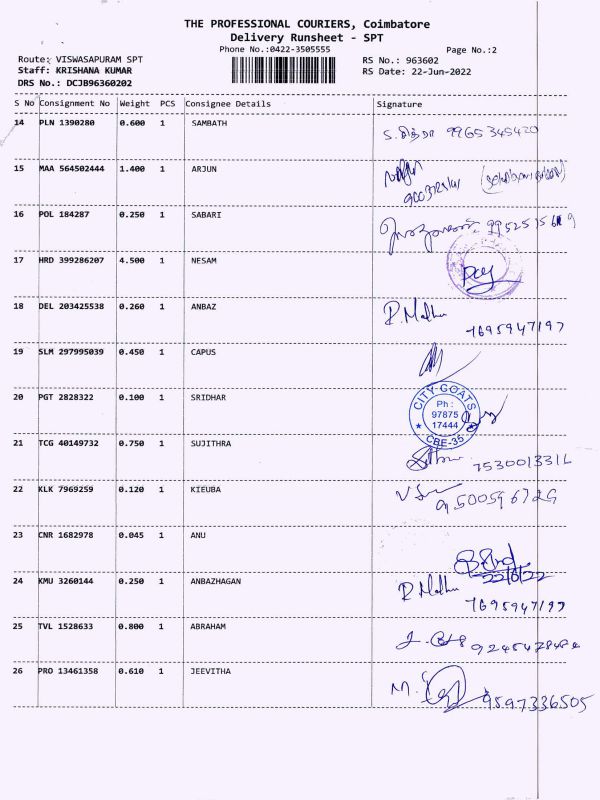 THE PROFESSIONAL COURIERS, Coimbatore
Delivery Runsheet - SPT
Phone No.:0422-3505555
Page No.:2
Route: VISWASAPURAM SPT
RS No.: 963602
Staff: KRISHANA KUMAR
RS Date: 22-Jun-2022
DRS No.: DCJB96360202
S No Consignment No Weight PCS Consignee Details Signature
14 PLN 1390280 0.600 1 SAMBATH 9965345420
15 MAA 564502444 1.400 1 ARJUN
16 POL 184287 0.250 1 SABARI
17 HRD 399286207 4.500 1 NESAM
18 DEL 203425538 0.260 1 ANBAZ R. Madhu
7695947197
19 SLM 297995039 0.450 1 CAPUS
20 PGT 2828322 0.100 1 SRIDHAR
CITY-GOATS
Ph :
97875
17444
CBE-35
21 TCG 40149732 0.750 1 SUJITHRA
22 KLK 7969259 0.120 1 KIEUBA
23 CNR 1682978 0.045 1 ANU
22/6/22
24 KMU 3260144 0.250 1 ANBAZHAGAN R. Madhu
7695947197
25 TVL 1528633 0.800 1 ABRAHAM
26 PRO 13461358 0.610 1 JEEVITHA
9597336505